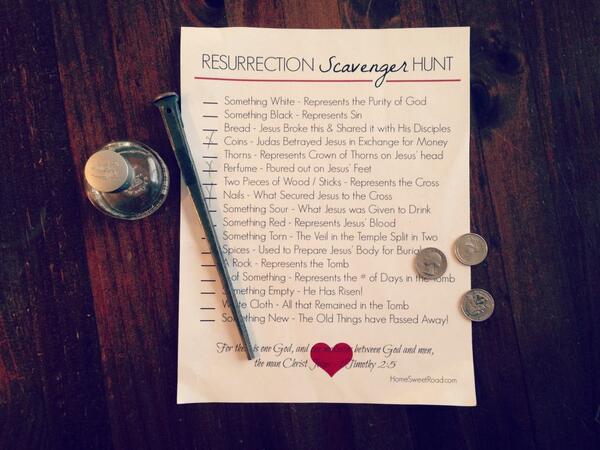 RESURRECTION Scavenger HUNT
Something White - Represents the Purity of God
Something Black - Represents Sin
Bread - Jesus Broke this & Shared it with His Disciples
Coins - Judas Betrayed Jesus in Exchange for Money
Thorns - Represents Crown of Thorns on Jesus' head
Perfume - Poured out on Jesus' Feet
Two Pieces of Wood / Sticks - Represents the Cross
Nails - What Secured Jesus to the Cross
Something Sour - What Jesus was Given to Drink
Something Red - Represents Jesus' Blood
Something Torn - The Veil in the Temple Split in Two
Spices - Used to Prepare Jesus' Body for Burial
A Rock - Represents the Tomb
of Something - Represents the # of Days in the Tomb
Something Empty - He Has Risen!
White Cloth - All that Remained in the Tomb
Something New - The Old Things have Passed Away!
For there is one God, and between God and men,
the man Christ Timothy 2:5
HomeSweetRoad.com